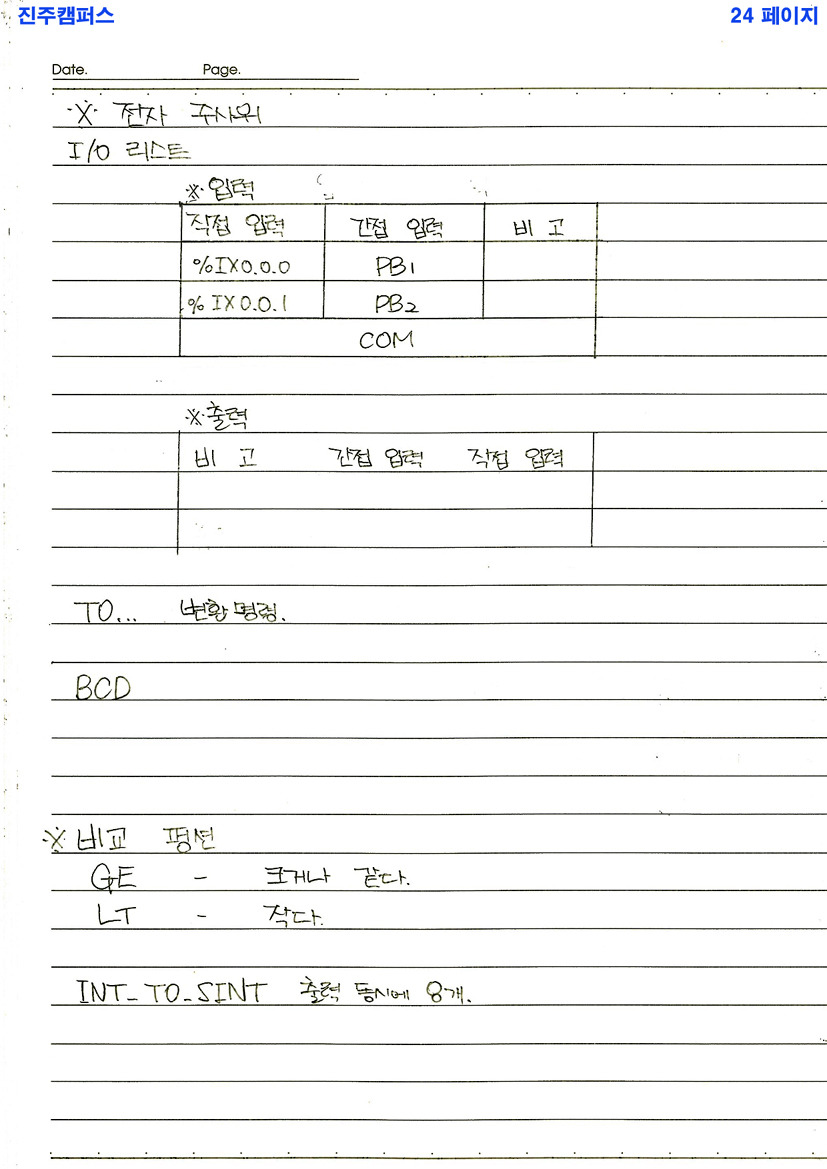 진주캠퍼스 24 페이지
Date. Page.
※ 전자 주사위
I/O 리스트
※ 입력
직접 입력 간접 입력 비 고
%IX0.0.0 PB1
%IX0.0.1 PB2
COM
※ 출력
비 고 간접 입력 직접 입력
TO... 변환 명령.
BCD
※ 비교 펑션
GE - 크거나 같다.
LT - 작다.
INT_TO_SINT 출력 동시에 8개.